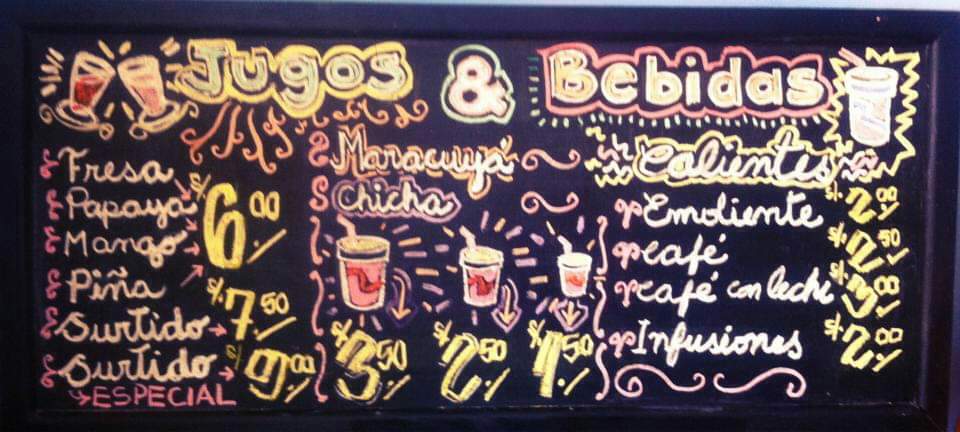 Jugos & Bebidas
Fresa
Papaya
Mango
Piña
S/. 6.00
Surtido S/. 7.50
Surtido S/. 9.00
ESPECIAL
Maracuyá
Chicha
S/. 3.50 S/. 2.50 S/. 1.50
Calientes
Emoliente S/. 2.00
café S/. 2.50
café con leche S/. 3.00
Infusiones S/. 2.00